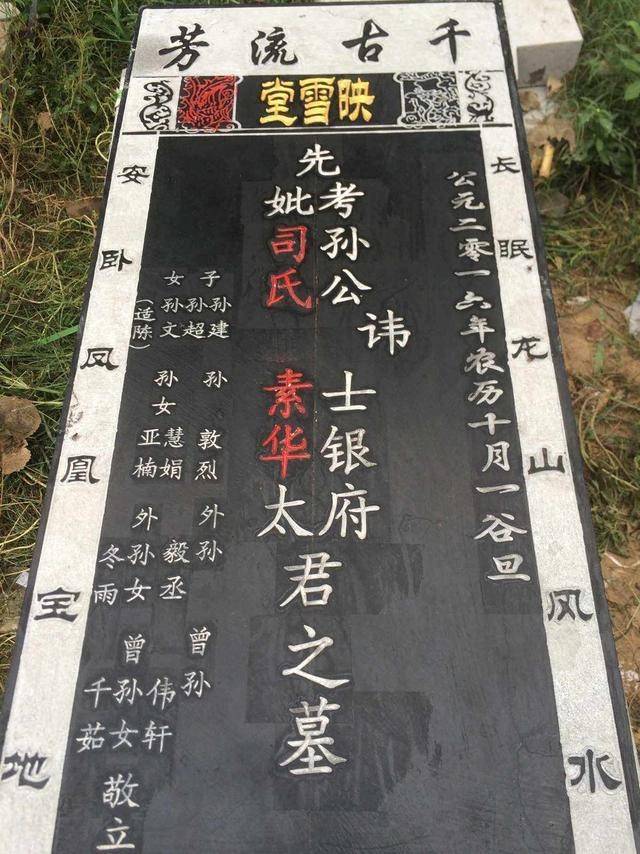 千古流芳
映雪堂
长眠龙山风水
公元二零一六年农历十月一谷旦
先
考孙公讳士银府
妣司氏素华太
君之墓
子 孙建
孙超
女 孙文
(适陈)
孙 敦烈
孙女 慧娟
亚楠
外孙 毅丞
外孙女 冬雨
曾孙 伟轩
曾孙女 千茹
敬立
安卧凤凰宝地